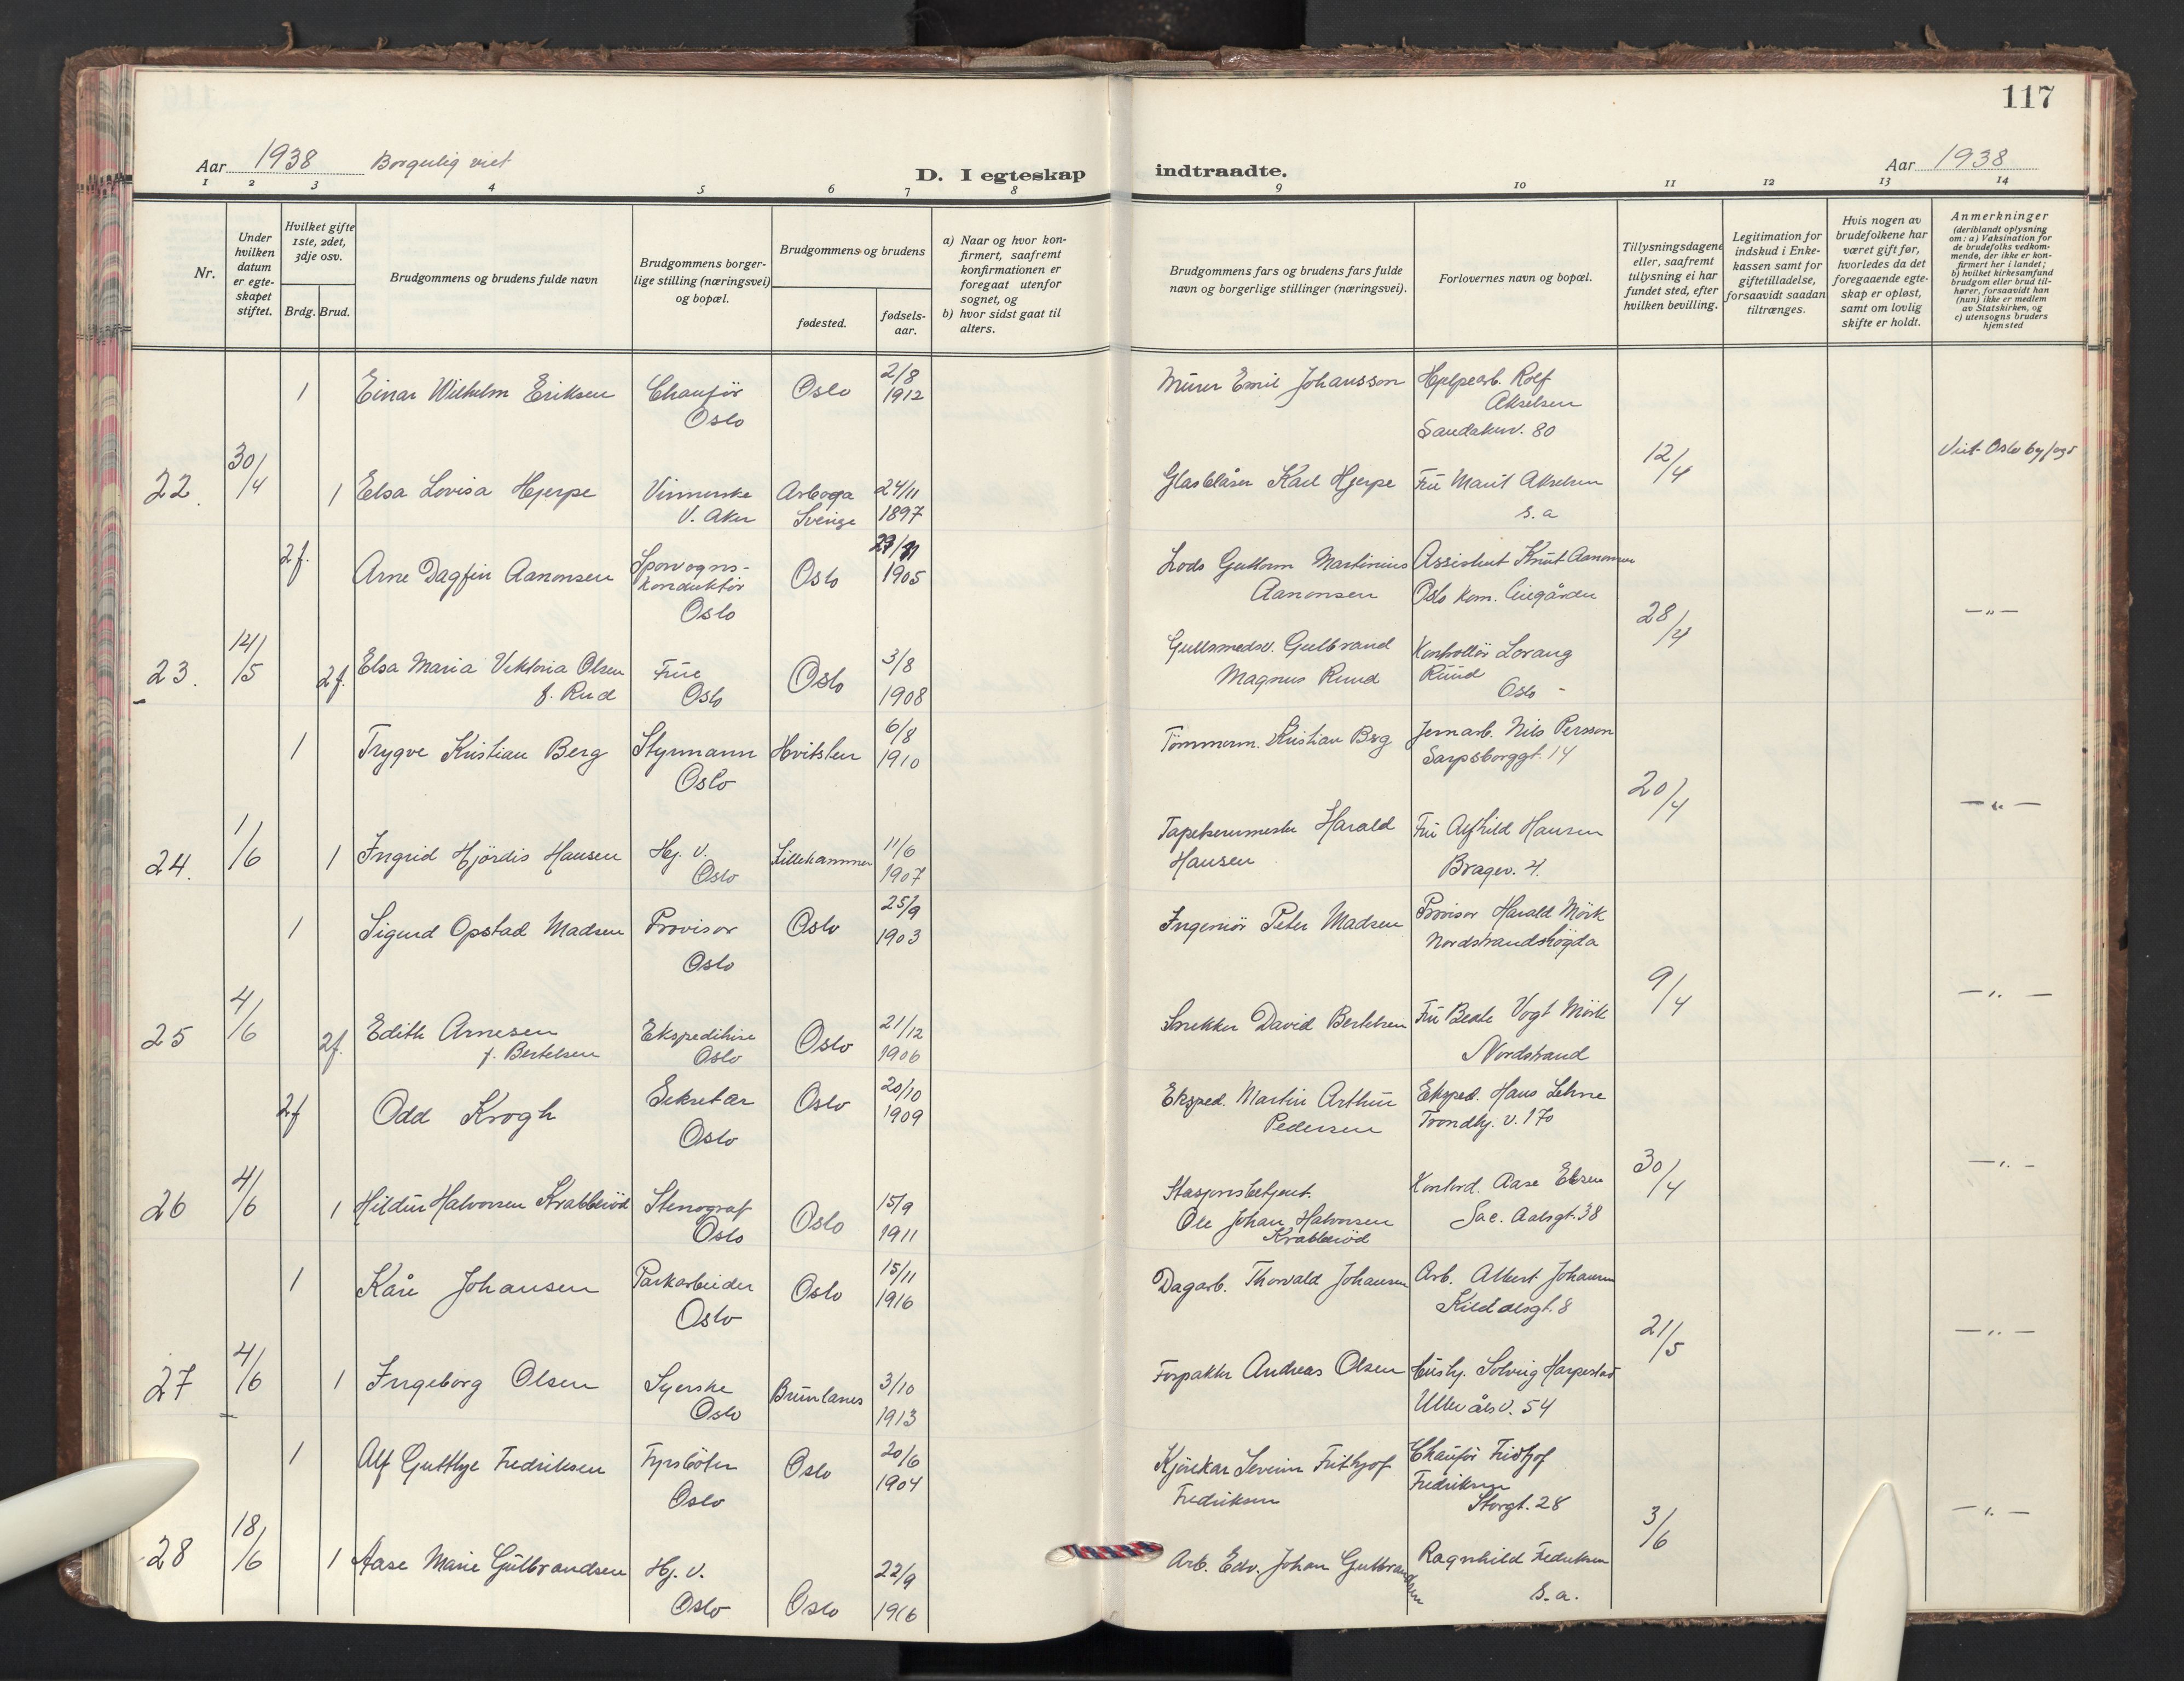 117
Aar 1938 Borgerlig viet
D. I egteskap indtraadte.
Aar 1938
1 2 3 4 5 6 7 8 9 10 11 12 13 14
Nr.
Under hvilken datum er egteskapet stiftet.
Hvilket gifte 1ste, 2det, 3dje osv.
Brdg. Brud.
Brudgommens og brudens fulde navn
Brudgommens borgerlige stilling (næringsvei) og bopæl.
Brudgommens og brudens
fødested.
fødselsaar.
a) Naar og hvor konfirmert, saafremt konfirmationen er foregaat utenfor sognet, og
b) hvor sidst gaat til alters.
Brudgommens fars og brudens fars fulde navn og borgerlige stillinger (næringsvei).
Forlovernes navn og bopæl.
Tillysningsdagene eller, saafremt tillysning ei har fundet sted, efter hvilken bevilling.
Legitimation for indskud i Enkekassen samt for giftetilladelse, forsaavidt saadan tiltrænges.
Hvis nogen av brudefolkene har været gift før, hvorledes da det foregaaende egteskap er opløst, samt om lovlig skifte er holdt.
Anmerkninger
(deriblandt oplysning om: a) Vaksination for de brudefolks vedkommende, der ikke er konfirmert her i landet;
b) hvilket kirkesamfund brudgom eller brud tilhører, forsaavidt han (hun) ikke er medlem av Statskirken, og
c) utensogns bruders hjemsted
1 Einar Wilhelm Eriksen Chauför Oslo Oslo 2/8 1912 Murer Emil Johansson Hjelpearb. Rolf Akselsen Sandakerv. 80
22. 30/4 1 Elsa Lovisa Hjerpe Vinnerske V. Aker Arboga Sverige 24/11 1897 Glasblåser Karl Hjerpe Fru Marit Akselsen s.a 12/4 Viet Oslo by/ogs
2f. Arne Dagfin Aanonsen Sporvogns-konduktör Oslo Oslo 1905 Lods Guttorm Martinius Aanonsen Assistent Knut Aanonsen Oslo kom.
23. 14/5 2f. Elsa Maria Viktoria Olsen f. Rud Frue Oslo Oslo 3/8 1908 Gullsmedsv. Gulbrand Magnus Ruud Kontrollör Lorang Ruud Oslo - 28/4 — " —
1 Trygve Kristian Berg Styrmann Oslo Hvitsten 6/8 1910 Tömmerm. Kristian Berg Jernarb. Nils Persson Sarpsborggt. 14
24. 1/6 1 Ingrid Hjördis Hansen Hj. v. Oslo Lillehammer 11/6 1907 Tapetserermester Harald Hansen Fru Alfhild Hansen Bragev. 4. 20/4 — " —
1 Sigurd Opstad Madsen Provisor Oslo Oslo 25/9 1903 Ingeniör Peter Madsen Provisor Harald Mörk Nordstrandshögda
25 4/6 2f. Edith Arnesen f. Bertelsen Ekspeditrise Oslo Oslo 21/12 1906 Snekker David Bertelsen Fru Beate Vogt Mörk Nordstrand 9/4 — " —
2f Odd Krogh Sekretær Oslo Oslo 20/10 1909 Eksped. Martin Arthur Pedersen Eksped. Hans Lehne Trondhj. v. 170
26 4/6 1 Hildur Halvorsen Krabberöd Stenograf Oslo Oslo 15/9 1911 Stasjonsbetjent. Ole Johan Halvorsen Krabberöd Kontord. Aase Ebsen Jac. Aalsgt. 38 30/4 — " —
1 Kåre Johansen Parkarbeider Oslo Oslo 15/11 1916 Dagarb. Thorvald Johansen Arb. Albert Johansen Kildalsgt. 8
27 4/6 1 Ingeborg Olsen Syerske Oslo Brunlanes 3/10 1913 Forpakter Andreas Olsen Hushj. Solveig Harpestad Ullevålsv. 54 21/5 — " —
1 Alf Gutthye Fredriksen Fyrböter Oslo Oslo 20/6 1904 Kjörekar Severin Frithjof Fredriksen Chauför Fridtjof Fredriksen Storgt. 28
28 18/6 1 Aase Marie Gulbrandsen Hj. v. Oslo Oslo 22/9 1916 Arb. Edv. Johan Gulbrandsen Ragnhild Fredriksen s.a. 3/6 — " —